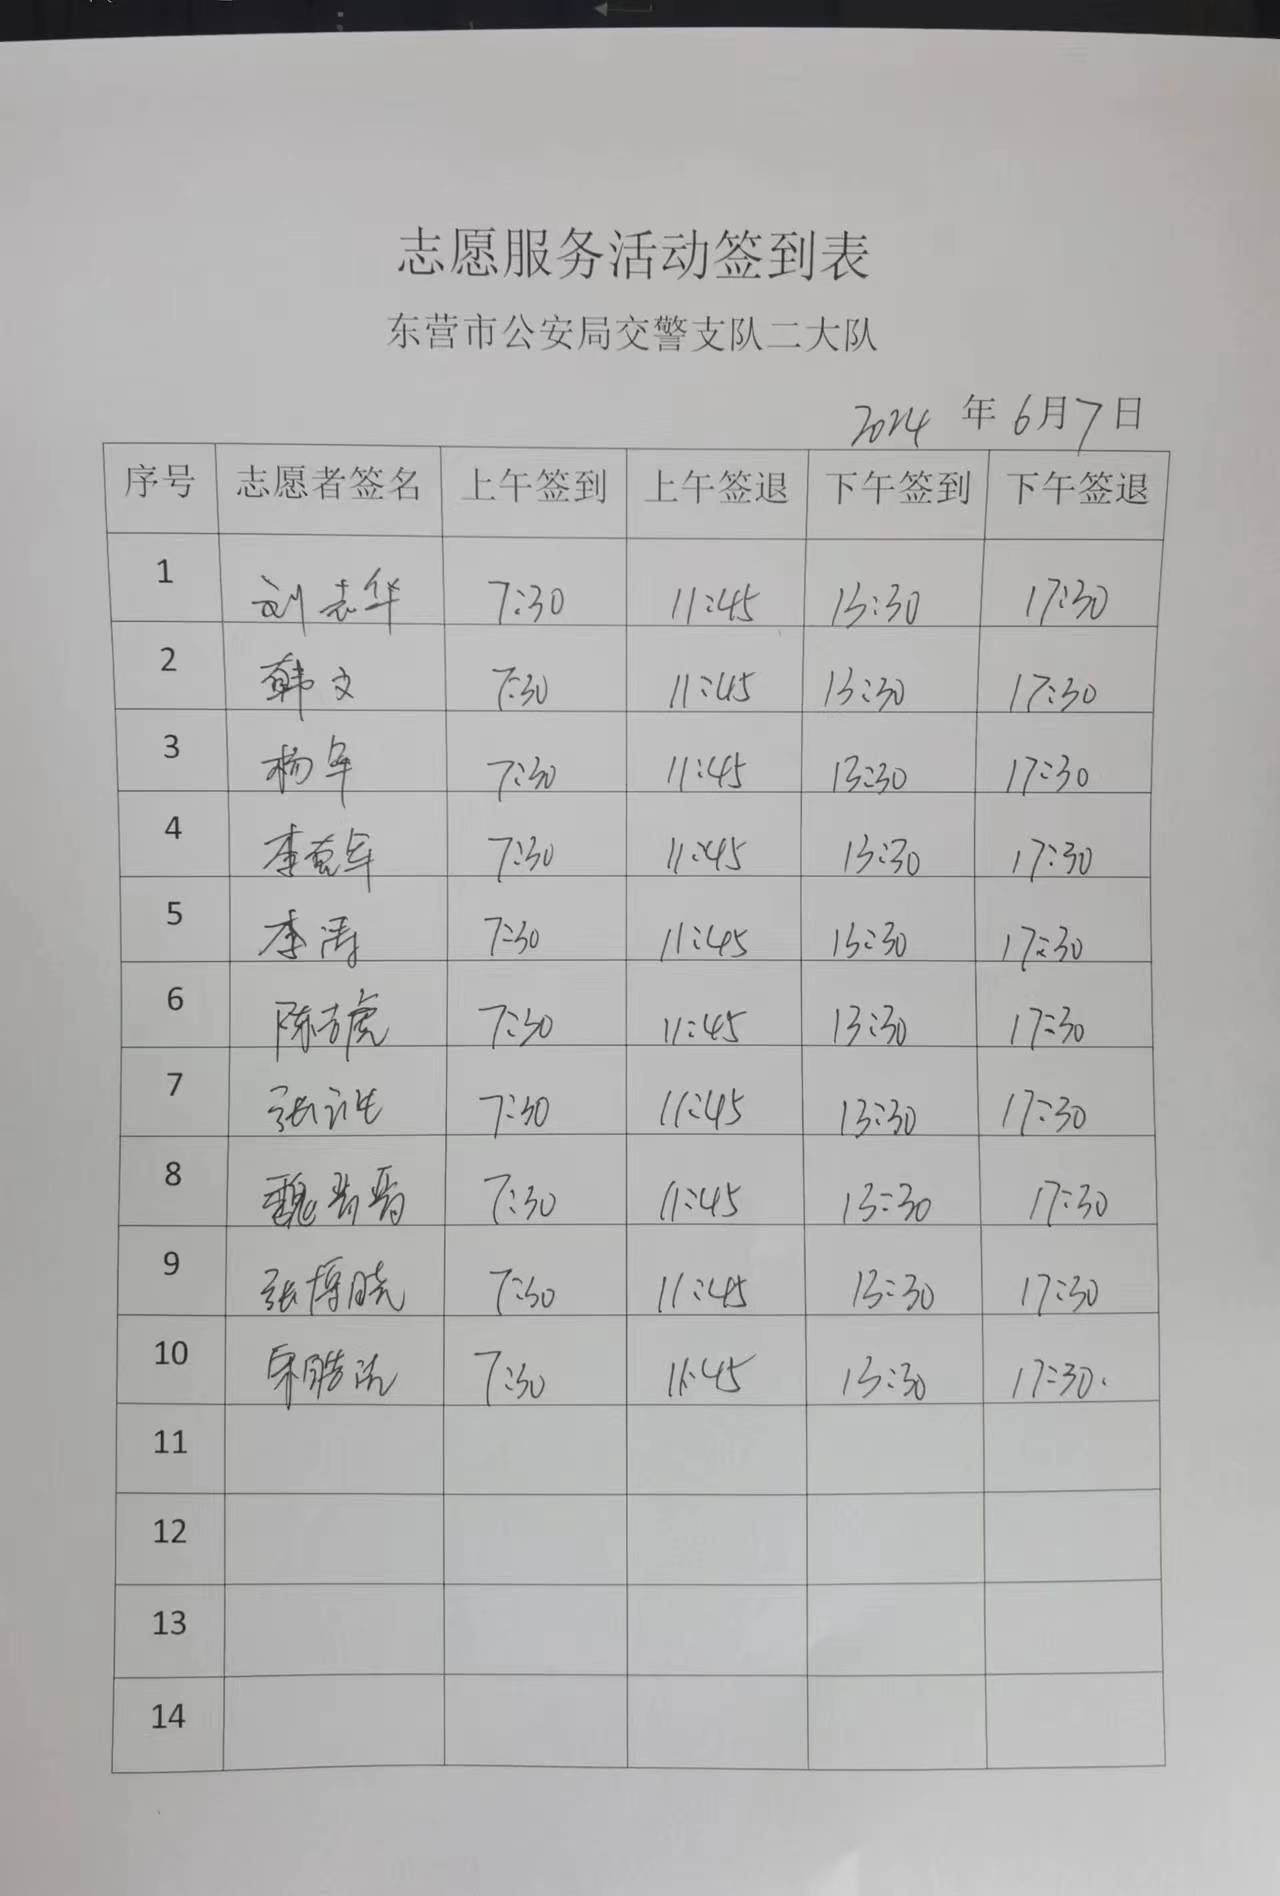 志愿服务活动签到表
东营市公安局交警支队二大队
2024 年 6月7日
序号 志愿者签名 上午签到 上午签退 下午签到 下午签退
1 刘志华 7:30 11:45 13:30 17:30
2 韩文 7:30 11:45 13:30 17:30
3 杨军 7:30 11:45 13:30 17:30
4 李克军 7:30 11:45 13:30 17:30
5 李涛 7:30 11:45 13:30 17:30
6 陈方虎 7:30 11:45 13:30 17:30
7 张 7:30 11:45 13:30 17:30
8 魏晋晋 7:30 11:45 13:30 17:30
9 张博晓 7:30 11:45 13:30 17:30
10 7:30 11:45 13:30 17:30.
11
12
13
14